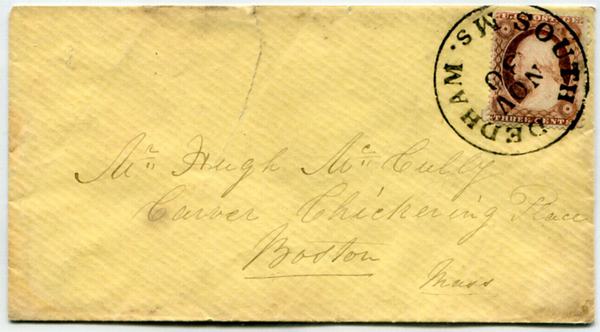 SOUTH DEDHAM. MS.
NOV
U.S. POSTAGE
THREE CENTS
Mr Hugh McCully
Carver Chickering Place
Boston
Mass